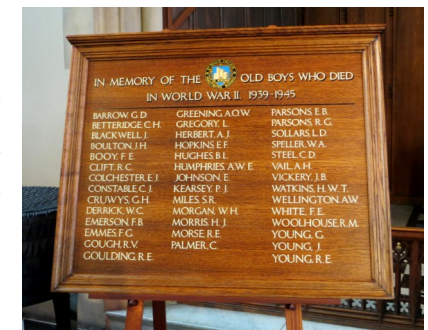 IN MEMORY OF THE OLD BOYS WHO DIED
IN WORLD WAR II. 1939-1945
BARROW, G.D.
BETTERIDGE, C.H.
BLACKWELL, J.
BOULTON, J.H.
BOOY, F.E.
CLIFT, R.C.
COLCHESTER, E.J.
CONSTABLE, C.J.
CRUWYS, G.H.
DERRICK, W.C.
EMERSON, F.B.
EMMES, F.G.
GOUGH, R.V.
GOULDING, R.E.
GREENING, A.O.W.
GREGORY, L.
HERBERT, A.J.
HOPKINS, E.F.
HUGHES, B.L.
HUMPHRIES, A.W.E.
JOHNSON, E.
KEARSEY, P.J.
MILES, S.R.
MORGAN, W.H.
MORRIS, H.J.
MORSE, R.E.
PALMER, C.
PARSONS, E.B.
PARSONS, R.G.
SOLLARS, L.D.
SPELLER, W.A.
STEEL, C.D.
VAIL, A.H.
VICKERY, J.B.
WATKINS, H.W.T.
WELLINGTON, A.W.
WHITE, F.E.
WOOLHOUSE, R.M.
YOUNG, G.
YOUNG, J.
YOUNG, R.E.